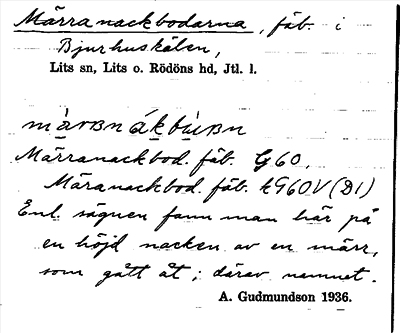 Märranackbodarna, fäb. i
Bjurhuskälen,
Lits sn, Lits o. Rödöns hd, Jtl. l.
Märranackbod. fäb. G60,
Märanackbod. fäb. kG60V (D1)
Enl. sägnen fann man här på
en höjd nacken av en märr,
som gått åt; därav namnet.
A. Gudmundson 1936.